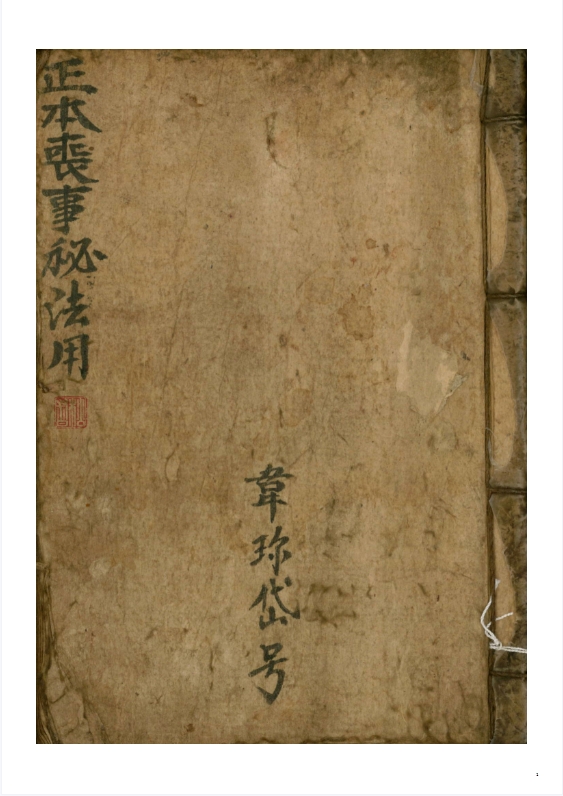 正本喪事秘法用
韋珎岱号
1